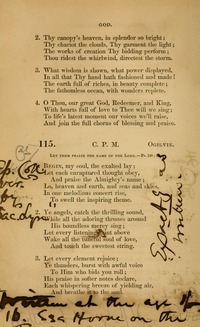 GOD.
2. Thy canopy's heaven, in splendor so bright;
Thy chariot the clouds, Thy garment the light;
The works of creation Thy bidding perform;
Thou ridest the whirlwind, directest the storm.
3. What wisdom is shown, what power displayed,
In all that Thy hand hath fashioned and made!
The earth full of riches, in beauty complete;
The fathomless ocean, with wonders replete.
4. O Thou, our great God, Redeemer, and King,
With hearts full of love to Thee will we sing;
To life's latest moment our voices we'll raise,
And join the full chorus of blessing and praise.
115. C. P. M. OGILVIE.
LET THEM PRAISE THE NAME OF THE LORD.—Ps.
BEGIN, my soul, the exalted lay;
Let each enraptured thought obey,
And praise the Almighty's name;
Lo, heaven and earth, and seas and skies,
In one melodious concert rise,
To swell the inspiring theme.
2. Ye angels, catch the thrilling sound,
While all the adoring thrones around
His boundless mercy sing;
Let every listening saint above
Wake all the tuneful soul of love,
And touch the sweetest string.
3. Let every element rejoice;
Ye thunders, burst with awful voice
To Him who bids you roll;
His praise in softer notes declare,
Each whispering breeze of yielding air,
And breathe it to the soul.
Exactly as
at the age of
16. on the